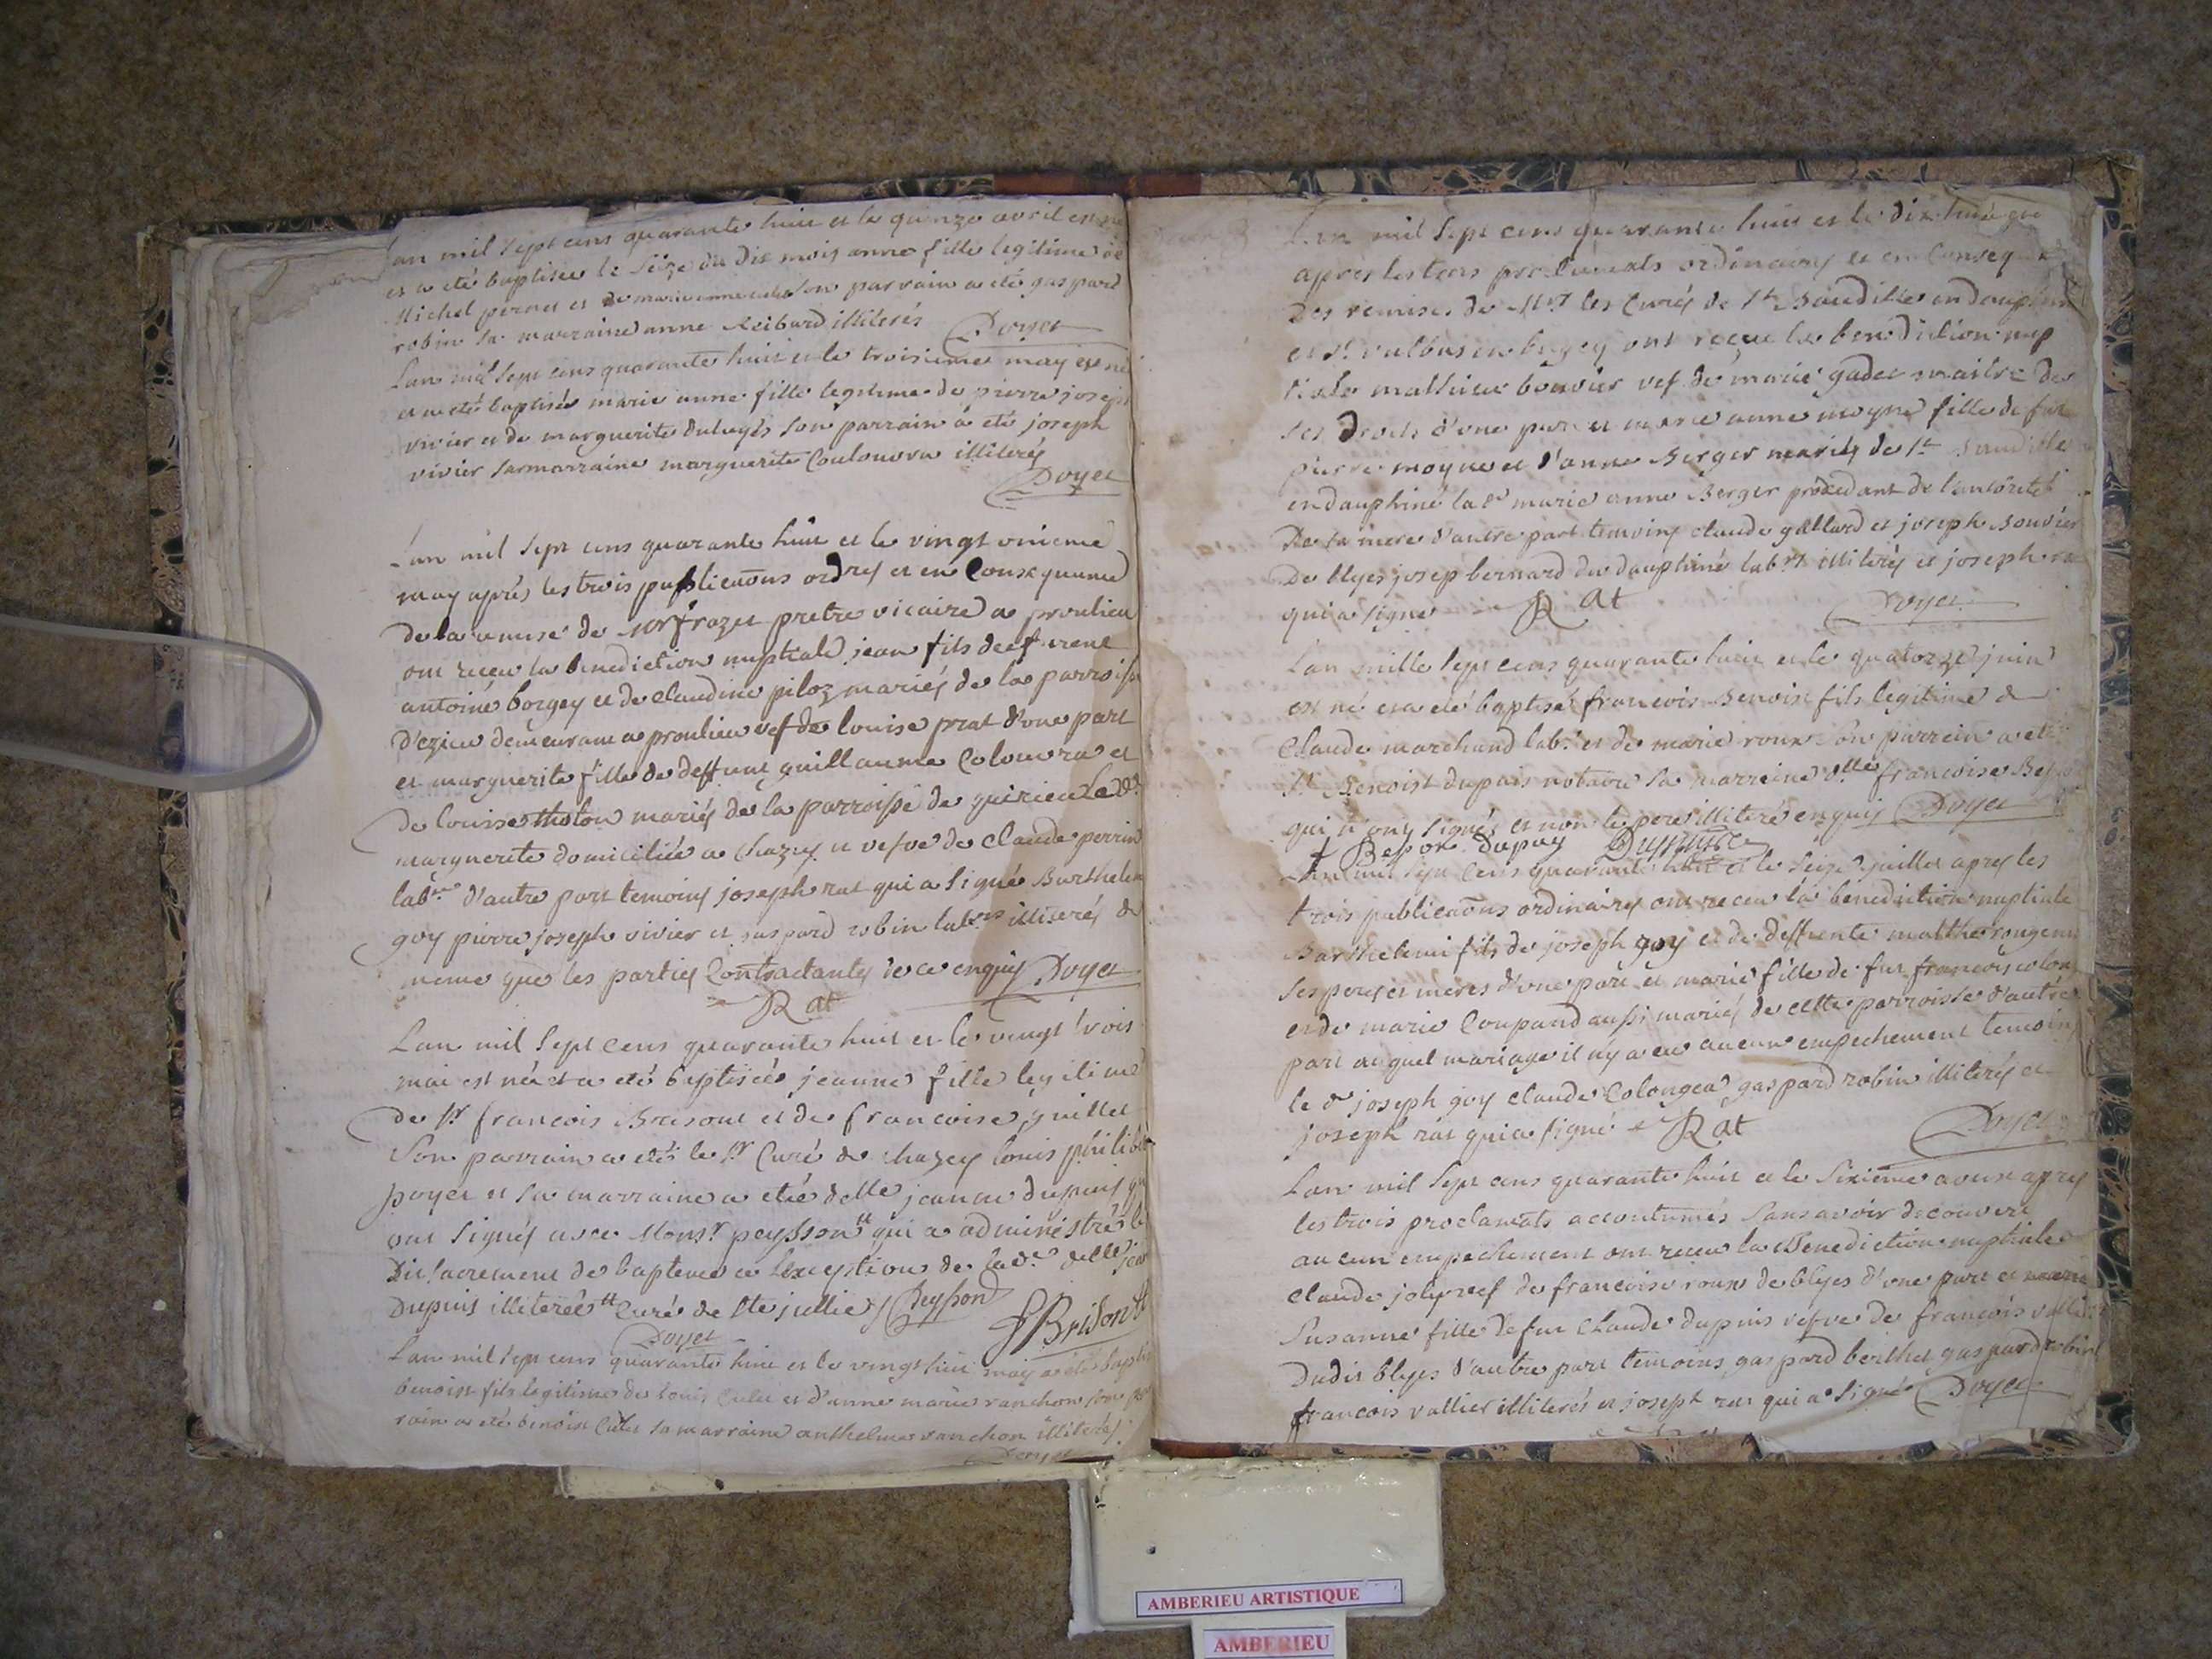 Lan mil sept cens quarante huit et le quinze avril est né
et a eté baptisée le seize du dit mois anne fille legitime de
Michel pernet et de marie anne son parrain a eté gaspard
robin sa marraine anne Reibard illiterés Doyet
Lan mil sept cens quarante huit et le troisieme may est né
et a eté baptisée marie anne fille legitime de pierre joseph
vivier et de marguerite son parrain a eté joseph
vivier sa marraine marguerite Coulonvra illiterés
Doyet
Lan mil sept cens quarante huit et le vingt unieme
may aprés les trois publications ordres et en Consequence
de la remise de mr frozet pretre vicaire a proulieu
ont receu la benediction nuptiale jean fils de
antoine borgey et de Claudine piloz mariés de la parroisse
D'ezieu demeurant a proulieu vef de louise prat d'une part
et marguerite fille de deffunt guillaume Colomvra et
de louise tholon mariés de la parroisse de quirieu La de
marguerite domiciliée a chazey et vefve de Claude perrin
labr d'autre part temoins joseph rat qui a signé Barthelemi
goy pierre joseph vivier et gaspard robin labrs illiterés de
meme que les parties Contractantes de ce enquis Doyet
Rat
Lan mil sept cens quarante huit et le vingt trois
mai est née et a eté baptisée jeanne fille legitime
de sr francois Brisont et de francoise guillet
Son parrain a eté le sr Curé de chazey louis philibert
Doyet et sa marraine a eté delle jeanne dupuis qui
ont signés avec Monsr peysson qui a administré le
Dit sacrement de bapteme a Lexception de la de delle jeanne
Dupuis illiterée Curé de ste jullie Peysson
JBrisont
Doyet
Lan mil sept cens quarante huit et le vingt huit may a eté baptisé
benoist fils legitime de louis Culet et d'anne marie ranchon son par
rain a eté benoist Culet sa marraine anthelme ranchon illiterés
Doyet
Lan mil sept cens quarante huit et le dix huit
apres les trois proclamats ordinaires et en Consequence
Des remises de Mrs les Curés de st Baudille en dauphiné
et st vulbas en bugey ont reçue la benediction nup
tiale mathieu bouvier vef de marie gadet maitre de
ses Droits d'une part et marie anne moyne fille de fut
pierre moyne et d'anne Berger mariés de st Baudille
en dauphiné la de marie anne Berger procedant de l'autorité
De sa mere d'autre part temoins claude gallard et joseph Bouvier
De blyes josep bernard du dauphiné labrs illiterés et joseph rat
qui a signé Rat Doyet
Lan mille sept cens quarante huit et le quatorze juin
est né et a eté baptisé francois Benoist fils legitime de
Claude marchand labr et de marie roux son parrein a eté
sr Benoist dupuis notaire sa marreine dlle francoise Besson
qui n'ont signés et non le pere illiteré enquis Doyet
f Beson dupuy Dupuis
Lan mil sept cens quarante huit et le seize juillet apres les
trois publications ordinaires ont receu la benediction nuptiale
Barthelemi fils de joseph goy et de deffunte matthe
ses peres et meres d'une part et marie fille de fut francois
et de marie Coupand aussi mariés de cette parroisse d'autre
part au quel mariage il n'y a eu aucun empechement temoins
le d joseph goy claude Colongea gaspard robin illiterés et
joseph rat qui a signé Rat Doyet
Lan mil sept cens quarante huit et le sixieme aoust apres
les trois proclamats accoutumés sans avoir decouvert
aucun empechement ont receu la Benediction nuptiale
claude joly vef de francoise roux de blyes d'une part et
Susanne fille de fut Claude dupuis vefve de francois vallier
Dudit blyes d'autre part temoins gaspard berthet gaspard robin
francois vallier illiterés et joseph rat qui a signé Doyet
AMBERIEU ARTISTIQUE
AMBERIEU